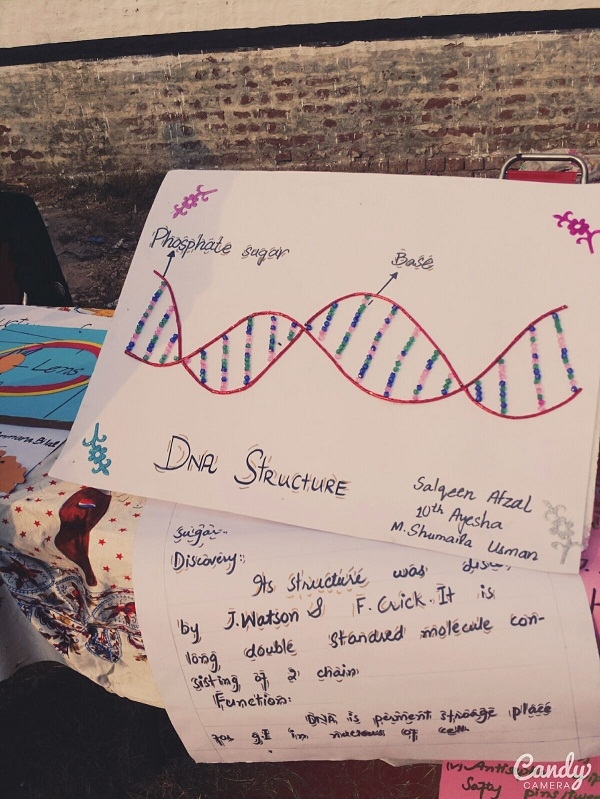 Phosphate sugar
Base
DNA STRUCTURE
Salqeen Afzal
10th Ayesha
M. Shumaila Usman
Lens
sugar..
Discovery:
Its structure was
by J.Watson & F. Crick. It is
long, double standred molecule con-
sisting of 2 chain
Function:
DNA is perment stroage place
in of
Candy
CAMERA